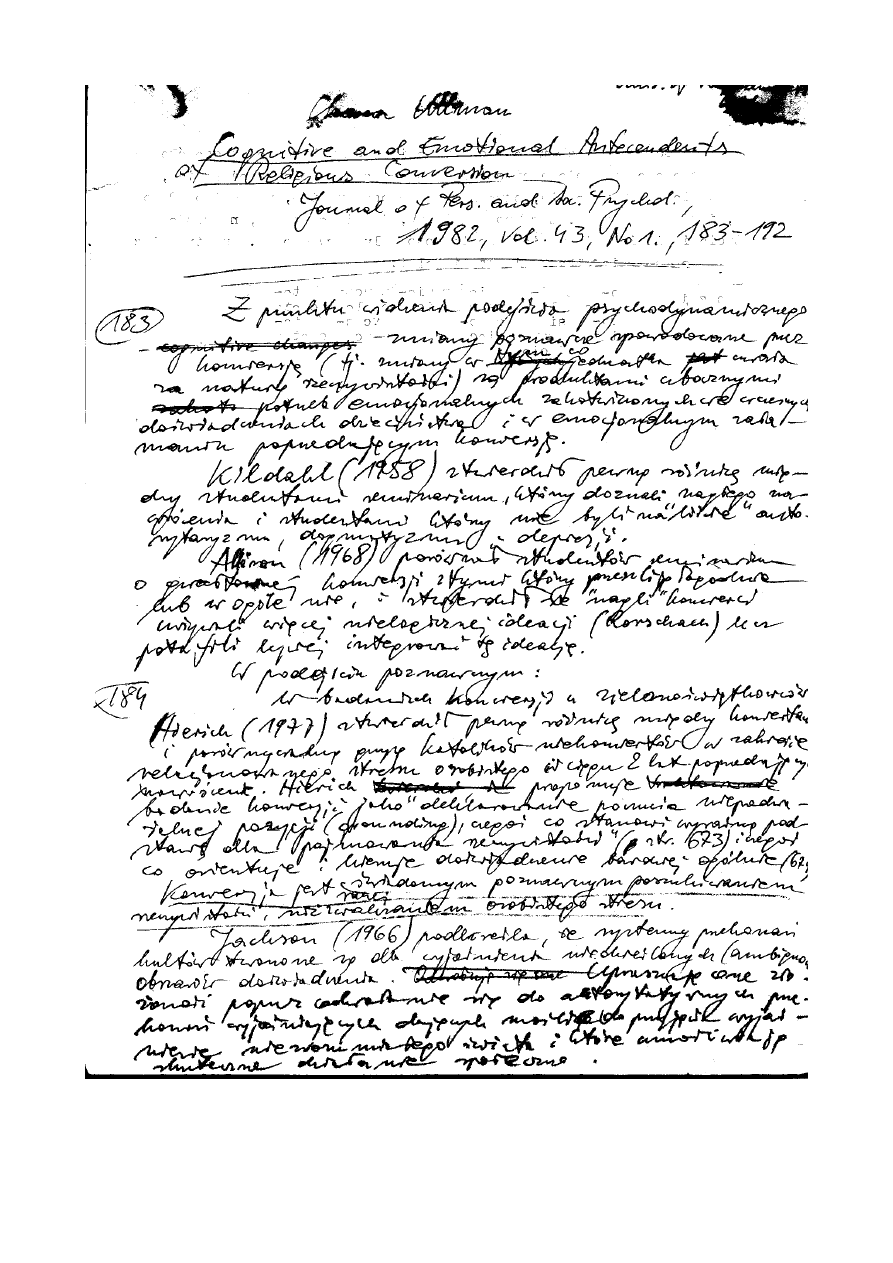 Chana Ullman
Cognitive and Emotional Antecendents
of Religious Conversion
Journal of Pers. and Soc. Psychol.,
1982, vol. 43, No 1., 183-192
183
Z punktu widzenia podejścia psychodynamicznego
- cognitive changes - zmiany poznawcze spowodowane przez
konwersję (tj. zmiany w tym co jednostka jest uważa
za naturę rzeczywistości) są produktami ubocznymi
potrzeb emocjonalnych zakotwiczonych we wczesnych
doświadczeniach dzieciństwa i w emocjonalnym zała-
maniu poprzedzającym konwersję.
Kildahl (1958) stwierdził pewną różnicę mię-
dzy studentami seminarium, którzy doznali nagłego na-
wrócenia i studentami którzy nie byli na
rytaryzmu, dogmatyzmu i depresji.
Allison (1968) porównał studentów seminarium
o gwałtownej konwersji z tymi którzy przeszli ją łagodnie
lub w ogóle nie, i stwierdził że "nagli" konwerci
więcej nielogicznej ideacji (Rorschach) lecz
potrafili lepiej integrować tę ideację.
W podejściu poznawczym:
184
W badaniach konwersji u zielonoświątkowców
Hierich (1977) stwierdził pewną różnicę między konwertami
i porównywalną grupą katolików niekonwertów w zakresie
relacjonowanego stresu osobistego w ciągu 2 lat poprzedzających
nawrócenie. Hierich proponuje traktowanie
badanie konwersji jako "deklarowanie poczucia niepodzie-
lnej pozycji (grounding), czegoś co stanowi wyraźną pod-
stawę dla pojmowania rzeczywistości" (str. 673) i czegoś
co orientuje i kieruje doświadczenie bardziej ogólnie (673
Konwersja jest raczej świadomym poznawczym poszukiwaniem
rzeczywistości, niż zwalczaniem osobistego stresu.
Jackson (1966) podkreśla, że systemy przekonań
kultów stworzone są dla wyjaśnienia nieokreślonych (ambiguous
obszarów doświadczenia. Upraszczają one zło-
żoność poprzez odwołanie się do autorytatywnych prze-
konań wyjaśniających dających możliwe do przyjęcia wyjaś-
nienie niezrozumiałego świata i które umożliwiają
skuteczne działanie społeczne.